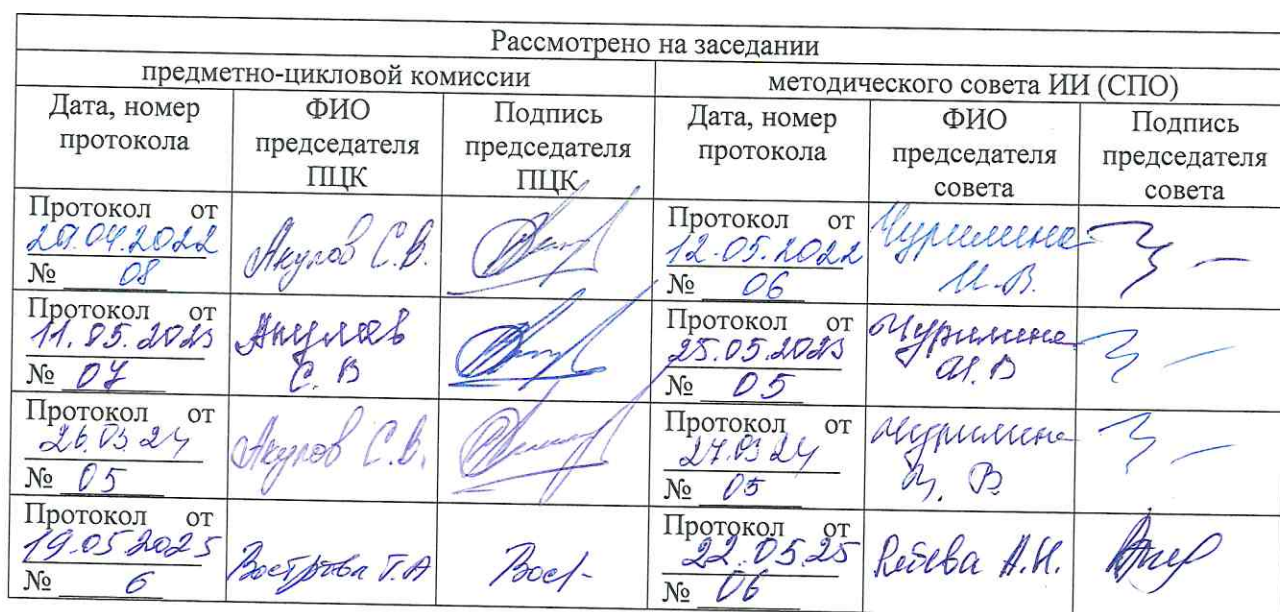 Рассмотрено на заседании
предметно-цикловой комиссии
методического совета ИИ (СПО)
Дата, номер
протокола
ФИО
председателя
ПЦК
Подпись
председателя
ПЦК
Дата, номер
протокола
ФИО
председателя
совета
Подпись
председателя
совета
Протокол от
04.2022
№ 08
Акулов С.В.
Протокол от
12.05.2022
№ 06
Чурилина
И.В.
Протокол от
11.05.2023
№ 07
Акулов
С. В
Протокол от
25.05.2023
№ 05
Чурилина
И.В
Протокол от
26.03.24
№ 05
Акулов С.В.
Протокол от
27.03.24
№ 05
Чурилина
И. В.
Протокол от
19.05.2025
№ 6
Вострова Т.А
Протокол от
22.05.25
№ 06
А.Н.